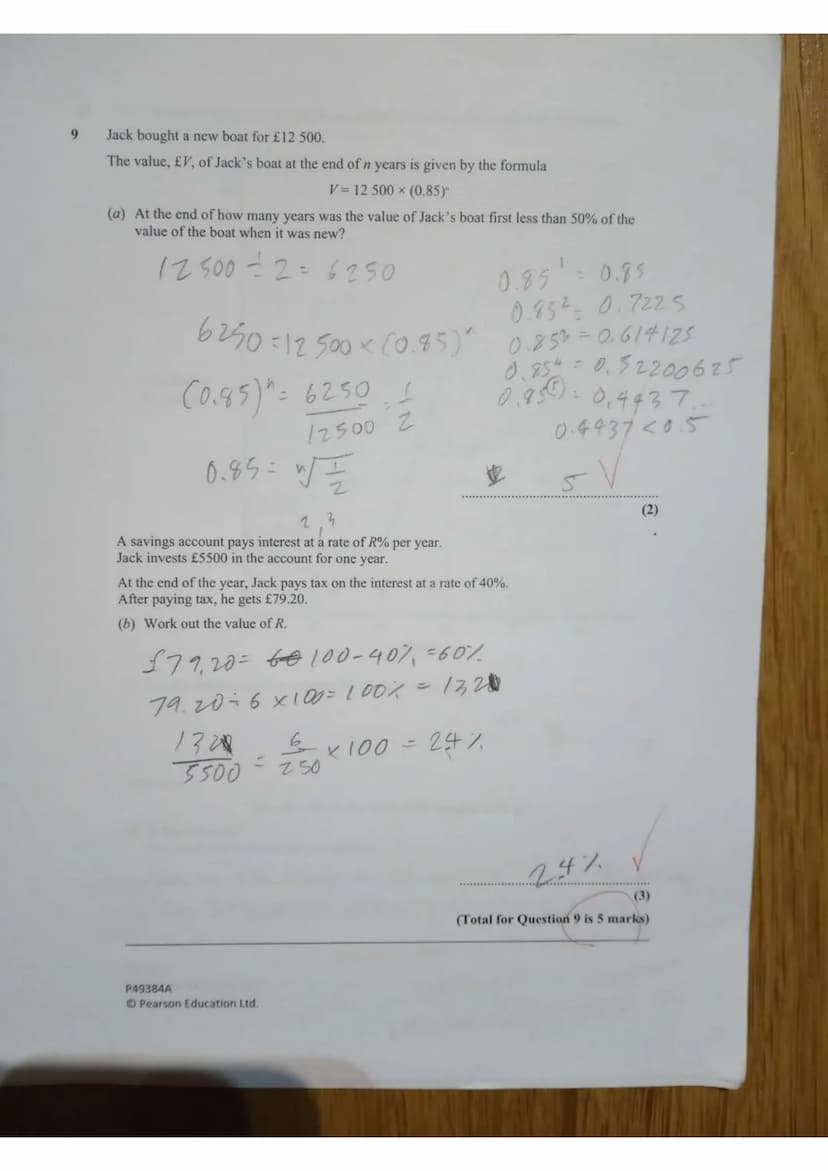 9 Jack bought a new boat for £12 500.
The value, £V, of Jack's boat at the end of n years is given by the formula
V = 12 500 × (0.85)ⁿ
(a) At the end of how many years was the value of Jack's boat first less than 50% of the
value of the boat when it was new?
12500 ÷ 2 = 6250
6250 = 12500 × (0.85)ⁿ
(0.85)ⁿ = 6250/12500 = 1/2
0.85 = ⁿ√1/2
0.85¹ = 0.85
0.85² = 0.7225
0.85³ = 0.614125
0.85⁴ = 0.52200625
0.85⁵ = 0.4437...
0.4437 < 0.5
5
(2)
2,3
A savings account pays interest at a rate of R% per year.
Jack invests £5500 in the account for one year.
At the end of the year, Jack pays tax on the interest at a rate of 40%.
After paying tax, he gets £79.20.
(b) Work out the value of R.
£79.20 = 100-40% = 60%
79.20 ÷ 6 × 100 = 100% = 132
132/5500 = 6/250 × 100 = 2.4%
2.4%
(3)
(Total for Question 9 is 5 marks)
P49384A
© Pearson Education Ltd.